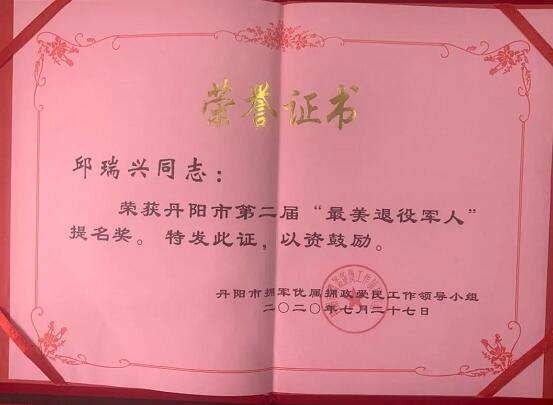 荣誉证书
邱瑞兴同志：
荣获丹阳市第二届“最美退役军人”
提名奖。特发此证，以资鼓励。
丹阳市拥军优属拥政爱民工作领导小组
二〇二〇年七月二十七日